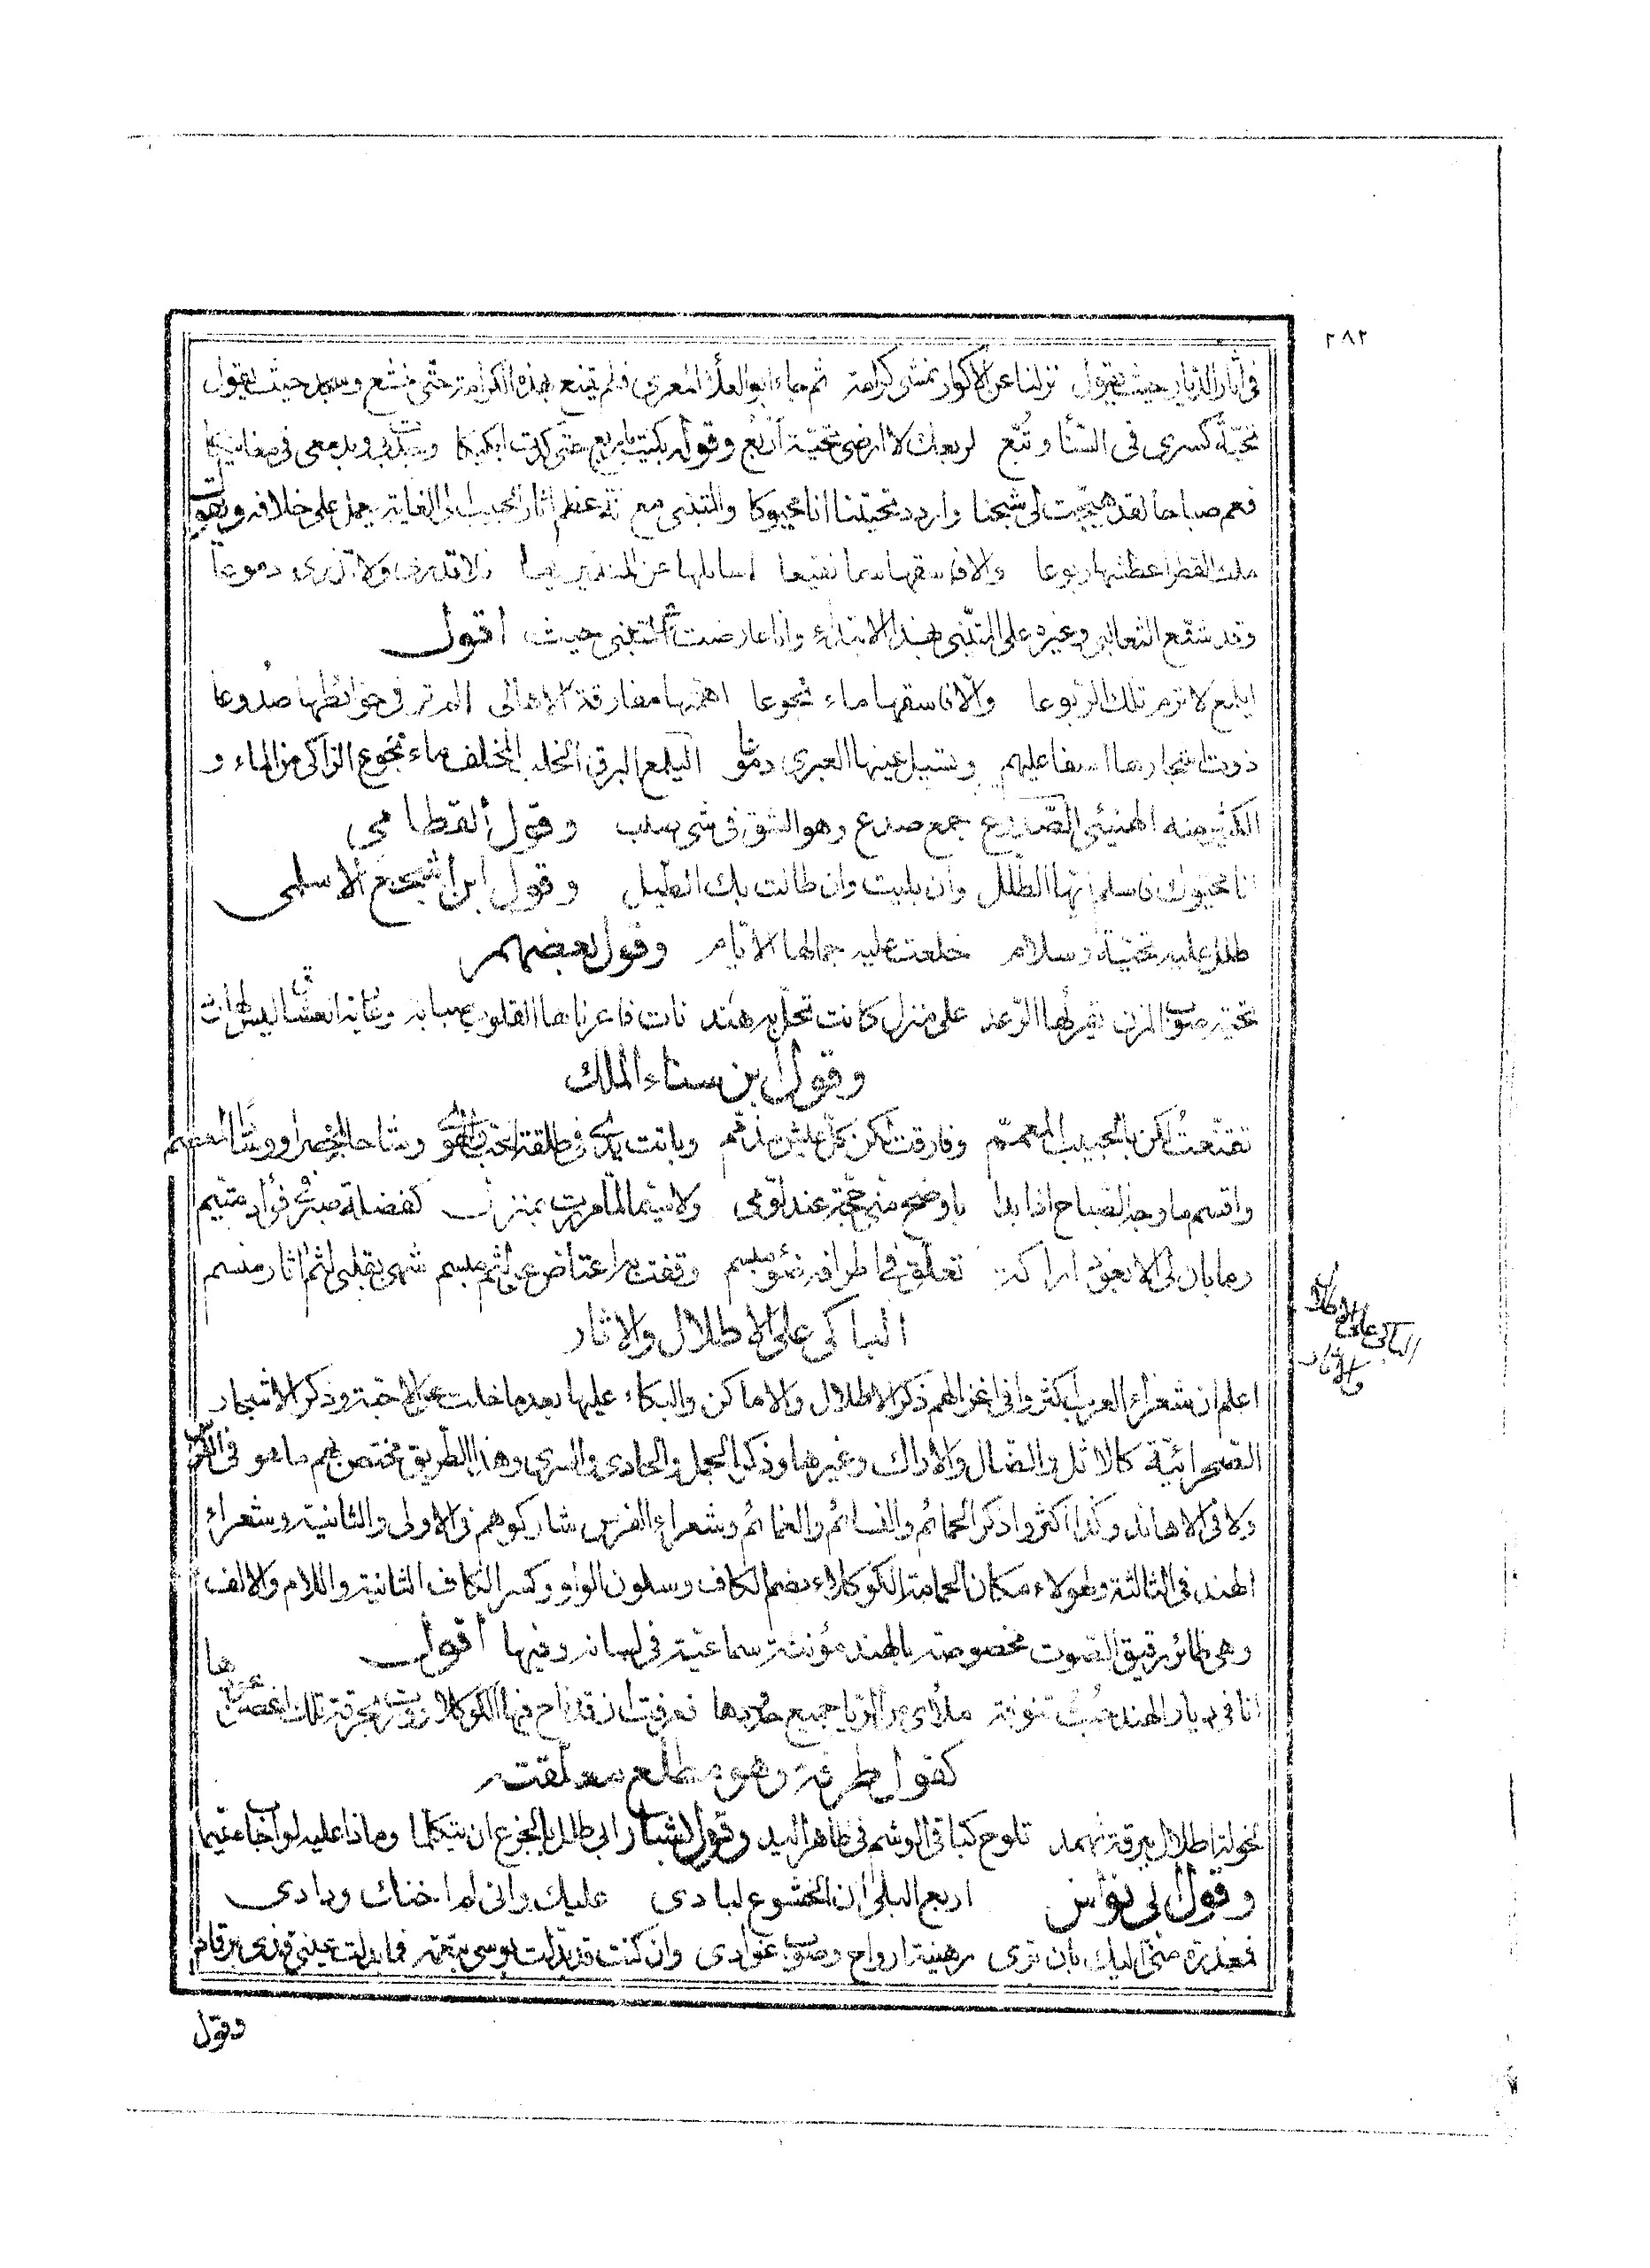 ٢٨٢
في آثار الديار حيث يقول نزلنا عن الاكوار نمشي كرامة ثم جاء ابو العلاء المعري فلم يقنع بهذه الكرامة حتى خشع وسجد حيث يقول
تحيّة كسرى في السنا وتبّع لربعك لا ارضى تحيّة اربع وقوله بكيت يا ربع حتى كدت ابكيكا وجدت بي وبدمعي في مغانيكا
فعم صباحا لقد هيّجت لي شجنا واردد تحيّتنا انا محيوكا والمتنبي مع عظم آثار الحبيب الى الغاية يعمل على خلافه ويقول
ملث القطر اعطشها ربوعا والا فاسقها سما نقيعا اسائلها عن المتديريها فلا تدري ولا تذري دموعا
وقد شنّع الثعالبي وغيره على المتنبي بهذا الابتداء وانا عارضت المتنبي حيث اقول
ايلمع لا ترم تلك الربوعا والّا فاسقها ماء نجوعا اهمّها مفارقة الاهالي الم تر في حوائطها صدوعا
ذوت اشجارها اسفا عليهم وتسيل عينها العبرى دموعا اليلمع البرق الخلب المخلف ماء نجوع الزاكي من الماء و
الكثير منه الهنيئي الصّدوع جمع صدع وهو الشق في شي صلب وقول القطامي
انا محيّوك فاسلم ايها الطلل وان بليت وان طالت بك الطيل وقول ابن اشجع الاسلمي
طلل عليه تحيّة وسلام خلعت عليه جمالها الايام وقول بعضهم
تحيّة صوب المزن يقرأها الرّعد على منزل كانت تحلّ به هند نات فاعرناها القلوب صبابة وعارية العشّاق ليس لها ردّ
وقول ابن سناء الملك
تقنّعت لكن بالحبيب المعمّم وفارقت لكن كلّ عيش مذمّم وباتت يدي في طاعة الحبّ والهوى وشاحا لخصر او سوارا لمعصم
واقسم ما وجه الصباح اذا بدا باوضح منّي حجّة عند لوّمي ولا سيّما لما مررت بمنزل كفضلة صبر في فؤاد متيّم
وما بان لي الا بعود اراكة تعلّق في اطرافه ضوء مبسم وقفت به اعتاض عن لثم مبسم شهي بقلبي لثم آثار منسم
الباكي على الاطلال والاثار
الباكي على الاطلال والآثار
اعلم ان شعراء العرب اكثروا في اغزالهم ذكر الاطلال والاماكن والبكاء عليها بعد ما خلت عن الاحبّة وذكر الاشجار
الصحرائيّة كالاثل والضال والاراك وغيرها وذكر الجمل والحادي والسرى وهذا الطريق مختص بهم ما هو في الفرس
ولا في الاهاند وكذا اكثروا ذكر الحمائم والنسائم والغمائم وشعراء الفرس شاركوهم في الاولى والثانية وشعراء
الهند في الثالثة ولهولاء مكان الحمامة الكوكلاء بضم الكاف وسكون الواو وكسر الكاف الثانية واللام والالف
وهي طائر رقيق الصوت مخصوصة بالهند مؤنثة سماعيّة في لسانه وفيها اقول
انا في ديار الهند جبت تنوفة ملأى من الريا جميع حدودها فعرفت ان قد ناح فيها الكوكلا تلك
كقول طرفة وهو مطلع معلّقته
لخولة اطلال ببرقة ثهمد تلوح كباقي الوشم في ظاهر اليد وقول بشار ابى طلل بالجزع ان يتكلما وماذا عليه لو اجاب متيما
وقول ابي نواس اربع البلى ان الخشوع لبادي عليك واني لم اخنك ودادي
فمعذرة منّي اليك بان ترى رهينة ارواح وصوب غوادي وان كنت قد بدّلت بوسى بنعمة فما بدلت عيني قذى برقاد
وقول